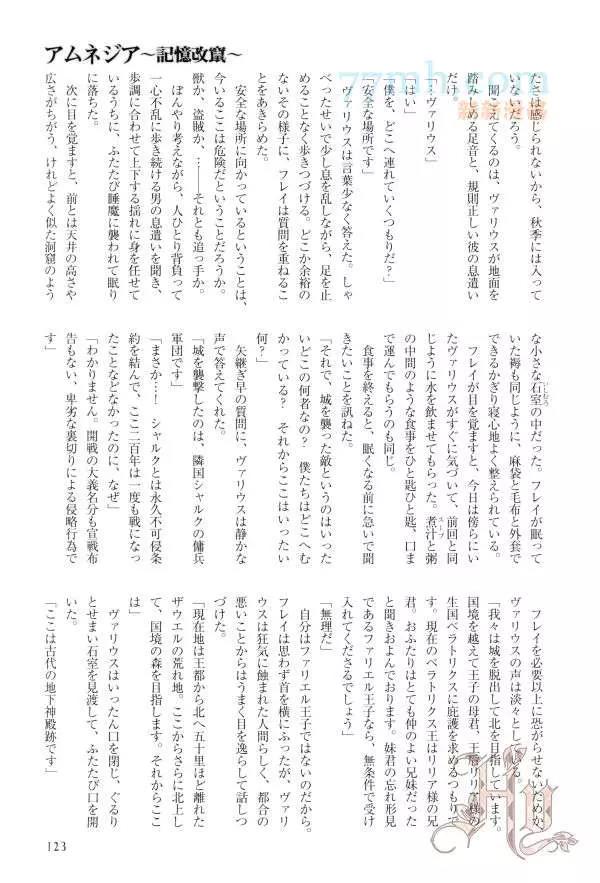 アムネジア〜記憶改竄〜
たさは感じられないから、秋季には入って
いないだろう。
聞こえてくるのは、ヴァリウスが地面を
踏みしめる足音と、規則正しい彼の息遣い
だけ。
「…ヴァリウス」
「はい」
「僕を、どこへ連れていくつもりだ?」
「安全な場所です」
ヴァリウスは言葉少なく答えた。しゃ
べったせいで少し息を乱しながら、足を止
めることなく歩きつづける。どこか余裕の
ないその様子に、フレイは質問を重ねるこ
とをあきらめた。
安全な場所に向かっているということは、
今いるここは危険だということだろうか。
獣か、盗賊か、……それとも追っ手か。
ぼんやり考えながら、人ひとり背負って
一心不乱に歩き続ける男の息遣いを聞き、
歩調に合わせて上下する揺れに身を任せて
いるうちに、ふたたび睡魔に襲われて眠り
に落ちた。
次に目を覚ますと、前とは天井の高さや
広さがちがう、けれどよく似た洞窟のよう
な小さな石室の中だった。フレイが眠って
いた褥も同じように、麻袋と毛布と外套で
できるかぎり寝心地よく整えられている。
フレイが目を覚ますと、今日は傍らにい
たヴァリウスがすぐに気づいて、前回と同
じように水を飲ませてもらった。煮汁と粥
の中間のような食事をひと匙ひと匙、口ま
で運んでもらうのも同じ。
食事を終えると、眠くなる前に急いで聞
きたいことを訊ねた。
「それで、城を襲った敵というのはいった
いどこの何者なの? 僕たちはどこへむ
かっている? それからここはいったい
何?」
矢継ぎ早の質問に、ヴァリウスは静かな
声で答えてくれた。
「城を襲撃したのは、隣国シャルクの傭兵
軍団です」
「まさか…! シャルクとは永久不可侵条
約を結んで、ここ二百年は一度も戦になっ
たことなどなかったのに、なぜ」
「わかりません。開戦の大義名分も宣戦布
告もない、卑劣な裏切りによる侵略行為で
フレイを必要以上に恐がらせないためか、
ヴァリウスの声は淡々としている。
「我々は城を脱出して北を目指しています。
国境を越えて王子の母君、王唇リリア様の
生国ベラトリクスに庇護を求めるつもりで
す。現在のベラトリクス王はリリア様の兄
君。おふたりはとても仲のよい兄妹だった
と聞きおよんでおります。妹君の忘れ形見
であるファリエル王子なら、無条件で受け
入れてくださるでしょう」
「無理だ」
自分はファリエル王子ではないのだから。
フレイは思わず首を横にふったが、ヴァリ
ウスは狂気に蝕まれた人間らしく、都合の
悪いことからはうまく目を逸らして話しつ
づけた。
「現在地は王都から北へ五十里ほど離れた
ザウエルの荒れ地。ここからさらに北上し
て、国境の森を目指します。それからここ
は」
ヴァリウスはいったん口を閉じ、ぐるり
とせまい石室を見渡して、ふたたび口を開
いた。
「ここは古代の地下神殿跡です」
123
77mh.com